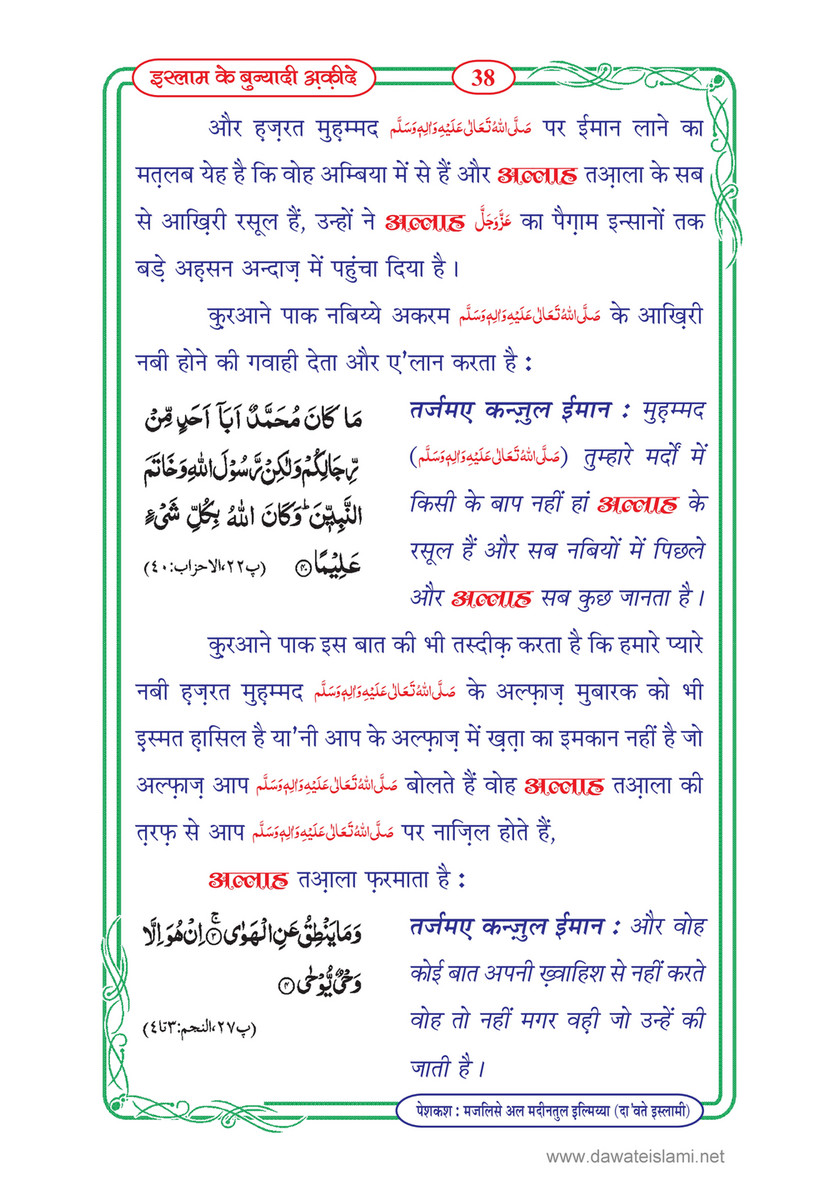 इस्लाम के बुन्यादी अ़क़ीदे
38
और ह़ज़रत मुह़म्मद صَلَّى اللهُ تَعَالٰى عَلَيْهِ وَاٰلِهٖ وَسَلَّم पर ईमान लाने का
मत़लब येह है कि वोह अम्बिया में से हैं और अल्लाह तआ़ला के सब
से आख़िरी रसूल हैं, उन्हों ने अल्लाह عَزَّوَجَلَّ का पैग़ाम इन्सानों तक
बड़े अह़सन अन्दाज़ में पहुंचा दिया है ।
क़ुरआने पाक नबिय्ये अकरम صَلَّى اللهُ تَعَالٰى عَلَيْهِ وَاٰلِهٖ وَسَلَّم के आख़िरी
नबी होने की गवाही देता और ए’लान करता है :
مَا كَانَ مُحَمَّدٌ اَبَاۤ اَحَدٍ مِّنْ
رِّجَالِكُمْ وَلٰكِنْ رَّسُوْلَ اللهِ وَخَاتَمَ
النَّبِيّٖنَ ؕ وَكَانَ اللهُ بِكُلِّ شَیْءٍ
عَلِيْمًا ﴿۴۰﴾ (پ۲۲،الاحزاب:۴۰)
तर्जमए कन्ज़ुल ईमान : मुह़म्मद
(صَلَّى اللهُ تَعَالٰى عَلَيْهِ وَاٰلِهٖ وَسَلَّم) तुम्हारे मर्दों में
किसी के बाप नहीं हां अल्लाह के
रसूल हैं और सब नबियों में पिछले
और अल्लाह सब कुछ जानता है ।
क़ुरआने पाक इस बात की भी तस्दीक़ करता है कि हमारे प्यारे
नबी ह़ज़रत मुह़म्मद صَلَّى اللهُ تَعَالٰى عَلَيْهِ وَاٰلِهٖ وَسَلَّم के अल्फ़ाज़ मुबारक को भी
इस्मत ह़ासिल है या’नी आप के अल्फ़ाज़ में ख़त़ा का इमकान नहीं है जो
अल्फ़ाज़ आप صَلَّى اللهُ تَعَالٰى عَلَيْهِ وَاٰلِهٖ وَسَلَّم बोलते हैं वोह अल्लाह तआ़ला की
त़रफ़ से आप صَلَّى اللهُ تَعَالٰى عَلَيْهِ وَاٰلِهٖ وَسَلَّم पर नाज़िल होते हैं,
अल्लाह तआ़ला फ़रमाता है :
وَمَا يَنْطِقُ عَنِ الْهَوٰى ﴿۳﴾ؕ اِنْ هُوَ اِلَّا
وَحْیٌ يُّوْحٰى ﴿۴﴾
(پ۲۷،النجم:۳تا۴)
तर्जमए कन्ज़ुल ईमान : और वोह
कोई बात अपनी ख़्वाहिश से नहीं करते
वोह तो नहीं मगर वह़ी जो उन्हें की
जाती है ।
पेशकश : मजलिसे अल मदीनतुल इल्मिय्या (दा'वते इस्लामी)
www.dawateislami.net